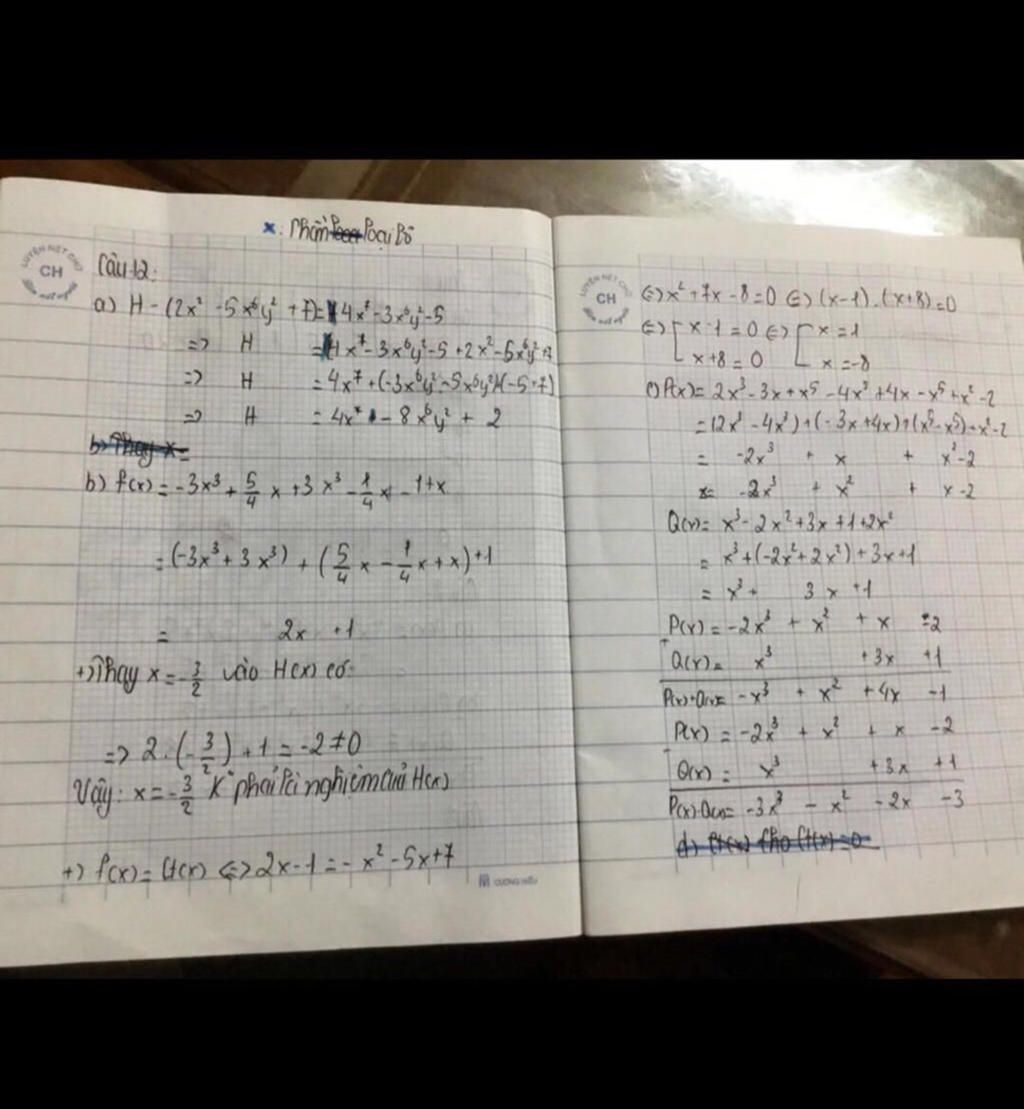 x: Phần loại bỏ
LUYỆN NÉT CHỮ
CH
Câu 12:
a) H - (2x² - 5x⁶y² + 7) = 4x⁷ - 3x⁶y² - 5
=> H = 4x⁷ - 3x⁶y² - 5 + 2x² - 5x⁶y² + 7
=> H = 4x⁷ + (-3x⁶y² - 5x⁶y²) + (-5+7)
=> H = 4x⁷ - 8x⁶y² + 2
b) Thay x =
b) f(x) = -3x³ + 5/4 x + 3x³ - 1/4 x - 1 + x
= (-3x³ + 3x³) + (5/4 x - 1/4 x + x) + 1
= 2x + 1
+) Thay x = -3/2 vào H(x) có:
=> 2 . (-3/2) + 1 = -2 ≠ 0
Vậy: x = -3/2 K° phải là nghiệm của H(x)
+) f(x) = G(x) <=> 2x - 1 = -x² - 5x + 7
CUONG HIEU
LUYỆN NÉT CHỮ
CH
<=> x² + 7x - 8 = 0 <=> (x-1) . (x+8) = 0
<=> [ x - 1 = 0 <=> [ x = 1
x + 8 = 0 x = -8
c) P(x) = 2x³ - 3x + x⁵ - 4x³ + 4x - x⁵ + x² - 2
= (2x³ - 4x³) + (-3x + 4x) + (x⁵ - x⁵) + x² - 2
= -2x³ + x + x² - 2
= -2x³ + x² + x - 2
Q(x) = x³ - 2x² + 3x + 1 + 2x²
= x³ + (-2x² + 2x²) + 3x + 1
= x³ + 3x + 1
P(x) = -2x³ + x² + x - 2
+
Q(x) = x³ + 3x + 1
P(x)+Q(x) = -x³ + x² + 4x - 1
P(x) = -2x³ + x² + x - 2
-
Q(x) = x³ + 3x + 1
P(x)-Q(x) = -3x³ - x² - 2x - 3
d) Cho G(x) = 0